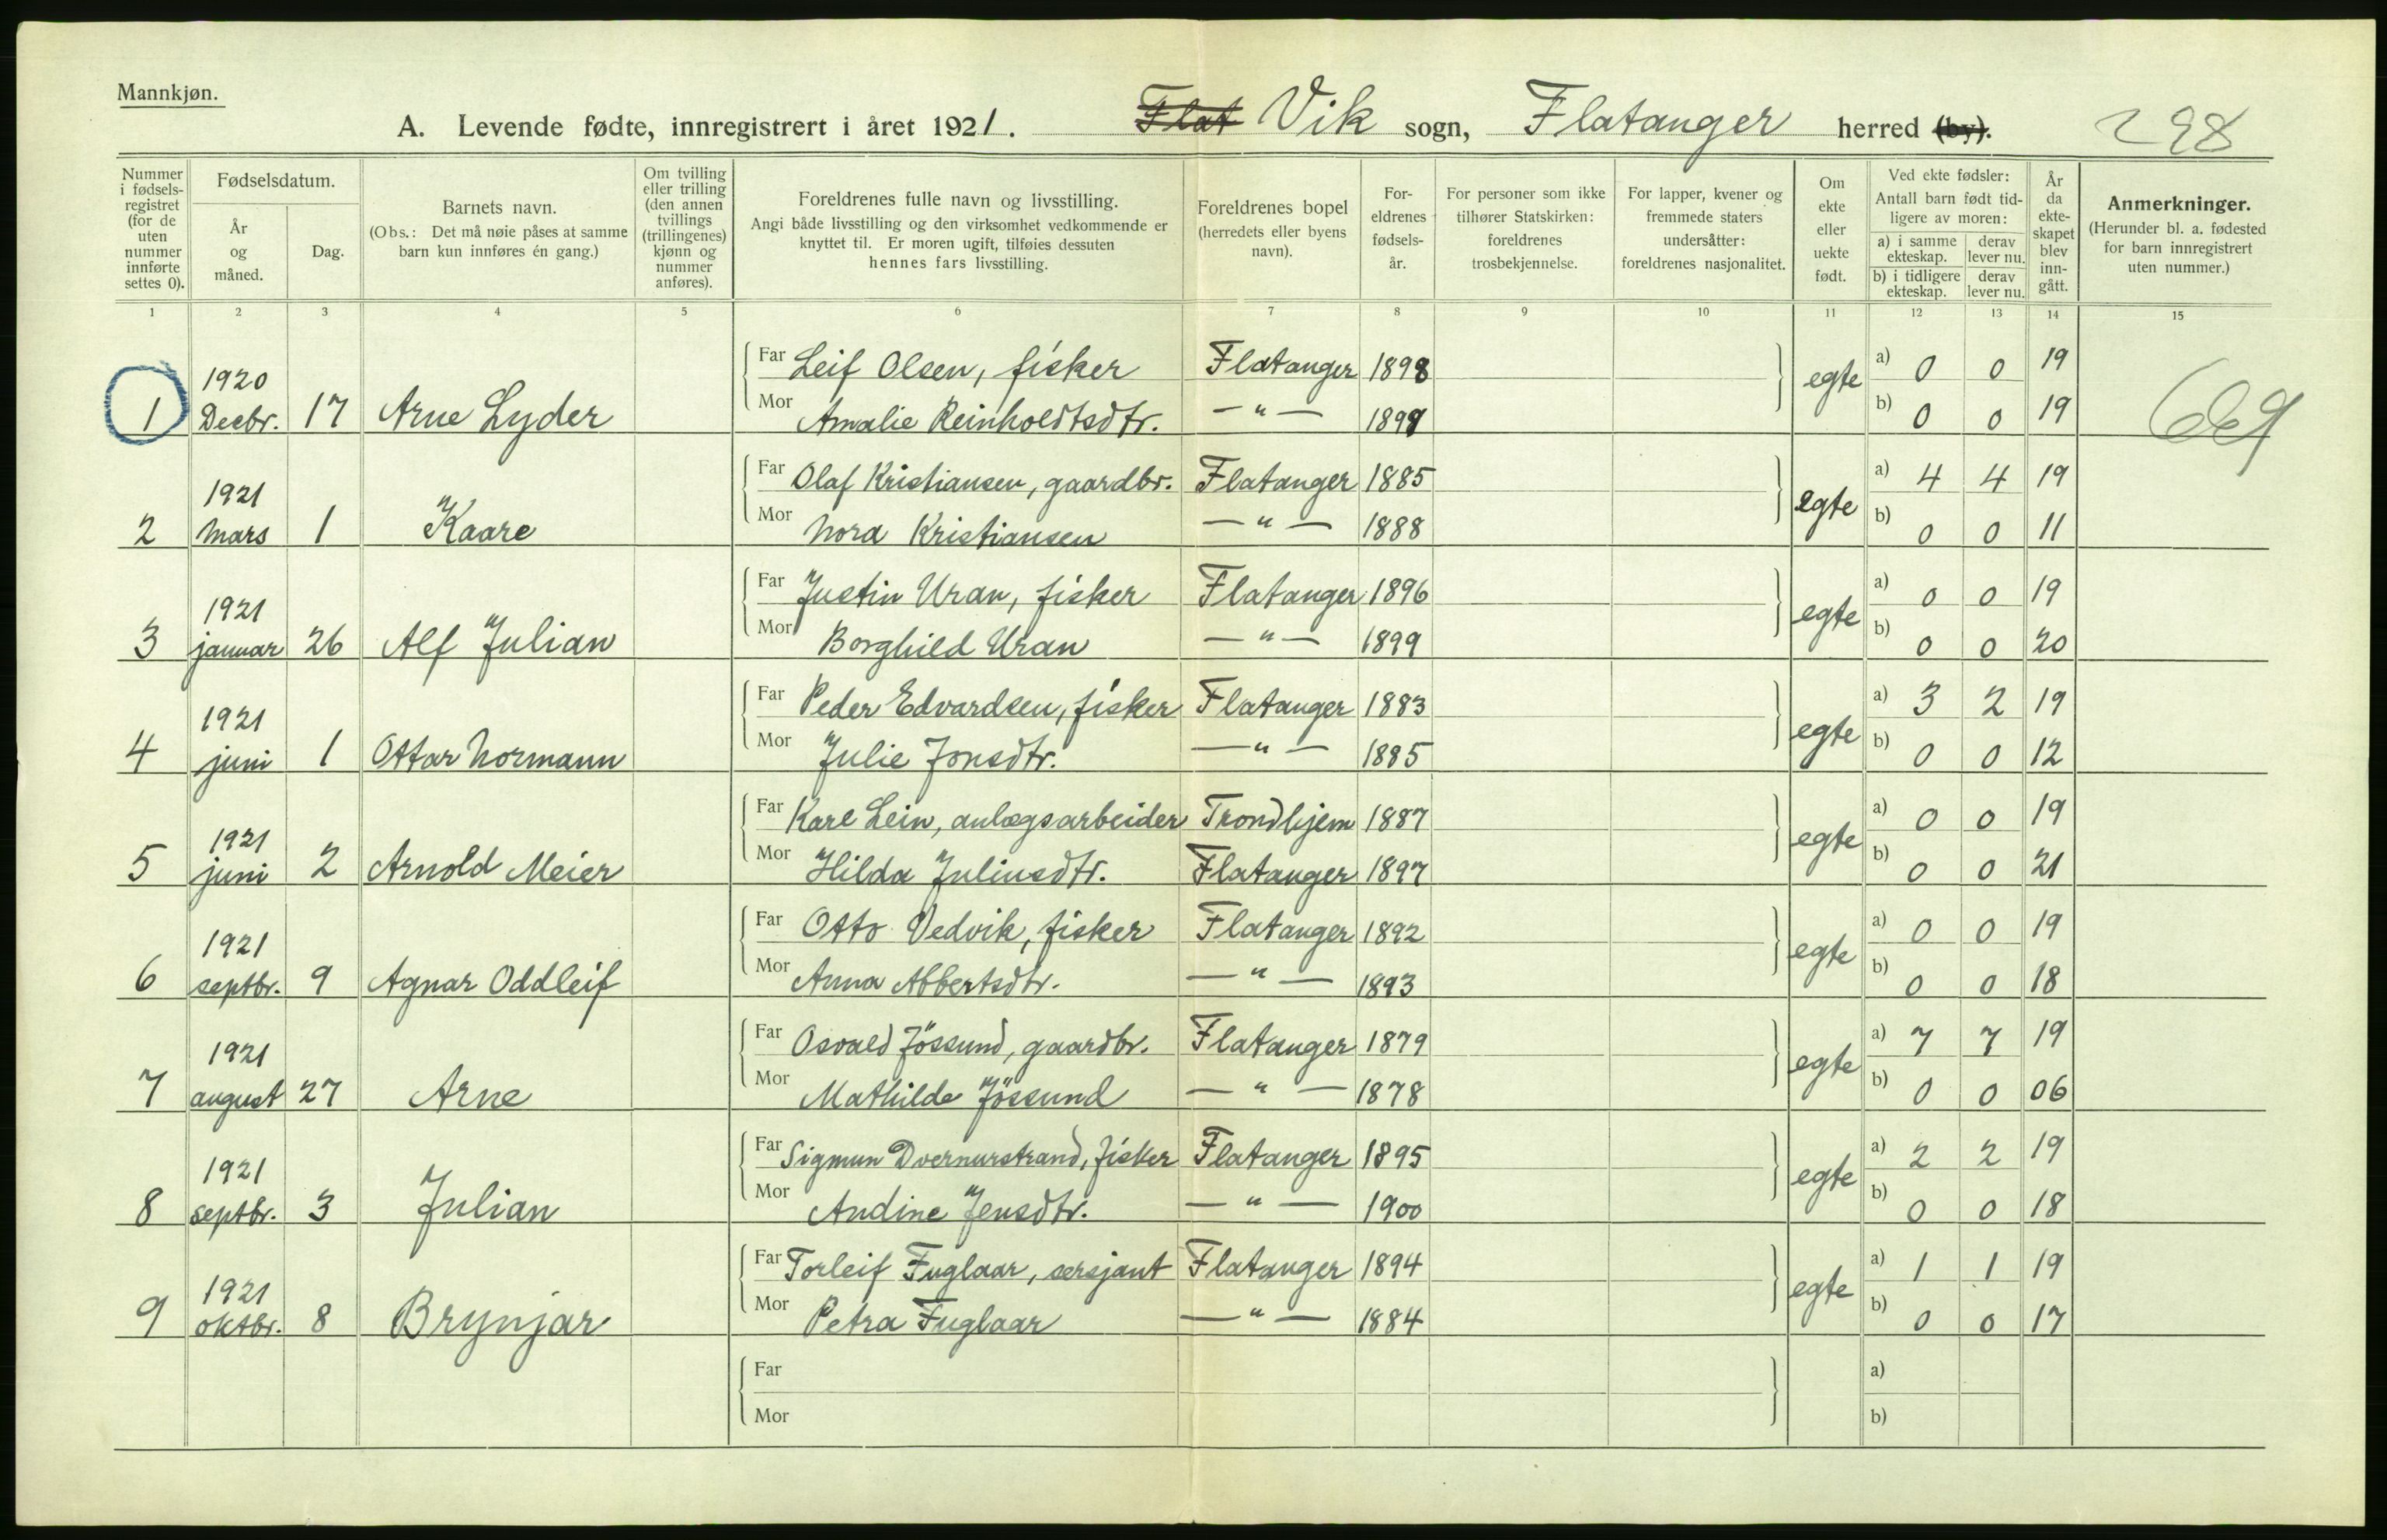 Mannkjøn.
A. Levende fødte, innregistrert i året 1921. Flat Vik sogn, Flatanger herred (by). 298
Nummer i fødsels-registret (for de uten nummer innførte settes 0).
Fødselsdatum.
År og måned.
Dag.
Barnets navn.
(Obs.: Det må nøie påses at samme barn kun innføres én gang.)
Om tvilling eller trilling (den annen tvillings (trillingenes) kjønn og nummer anføres).
Foreldrenes fulle navn og livsstilling.
Angi både livsstilling og den virksomhet vedkommende er knyttet til. Er moren ugift, tilføies dessuten hennes fars livsstilling.
Foreldrenes bopel (herredets eller byens navn).
For-eldrenes fødsels-år.
For personer som ikke tilhører Statskirken: foreldrenes trosbekjennelse.
For lapper, kvener og fremmede staters undersåtter: foreldrenes nasjonalitet.
Om ekte eller uekte født.
Ved ekte fødsler:
Antall barn født tid-ligere av moren:
a) i samme ekteskap. derav lever nu.
b) i tidligere ekteskap. derav lever nu.
År da ekte-skapet blev inn-gått.
Anmerkninger.
(Herunder bl. a. fødested for barn innregistrert uten nummer.)
1 2 3 4 5 6 7 8 9 10 11 12 13 14 15
1920 Far Leif Olsen, fisker Flatanger 1898 egte a) 0 0 19
1 Decbr. 17 Arne Lyder Mor Amalie Reinholdtsdtr. —"— 1899 b) 0 0 19
1921 Far Olaf Kristiansen, gaardbr. Flatanger 1885 egte a) 4 4 19
2 Mars 1 Kaare Mor Nora Kristiansen —"— 1888 b) 0 0 11
1921 Far Justin Uran, fisker Flatanger 1896 egte a) 0 0 19
3 januar 26 Alf Julian Mor Borghild Uran —"— 1899 b) 0 0 20
1921 Far Peder Edvardsen, fisker Flatanger 1883 egte a) 3 2 19
4 juni 1 Ottar Normann Mor Julie Jonsdtr. —"— 1885 b) 0 0 12
1921 Far Karl Lein, anlægsarbeider Trondhjem 1887 egte a) 0 0 19
5 juni 2 Arnold Meier Mor Hilda Juliusdtr. Flatanger 1897 b) 0 0 21
1921 Far Otto Vedvik, fisker Flatanger 1892 egte a) 0 0 19
6 septbr. 9 Agnar Oddleif Mor Anna Albertsdtr. —"— 1893 b) 0 0 18
1921 Far Osvald Jössund, gaardbr. Flatanger 1879 egte a) 7 7 19
7 august 27 Arne Mor Mathilde Jössund —"— 1878 b) 0 0 06
1921 Far Sigmun Dvernurstrand, fisker Flatanger 1895 egte a) 2 2 19
8 septbr. 3 Julian Mor Andine Jensdtr. —"— 1900 b) 0 0 18
1921 Far Torleif Fuglaar, sersjant Flatanger 1894 egte a) 1 1 19
9 oktbr. 8 Brynjar Mor Petra Fuglaar —"— 1884 b) 0 0 17
Far a)
Mor b)